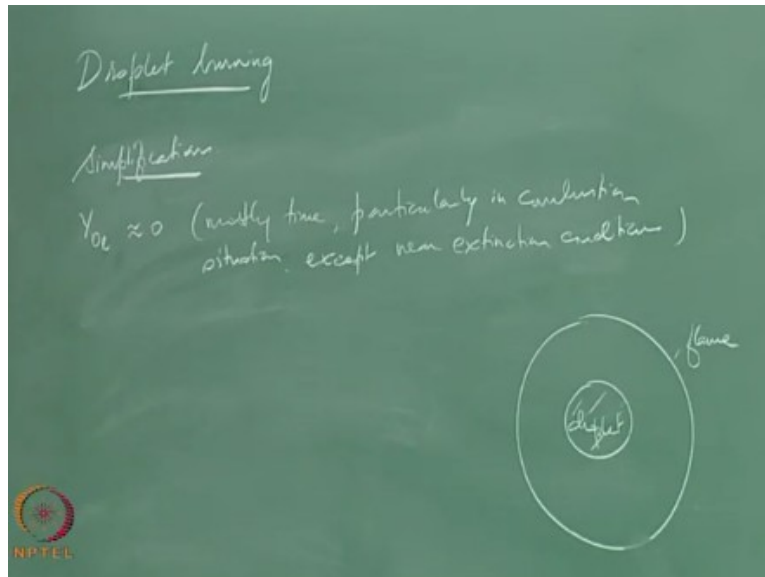 Droplet burning
Simplifications
Y_Ol ≈ 0 (mostly true, particularly in combustion
situation, except near extinction conditions)
flame
droplet
NPTEL